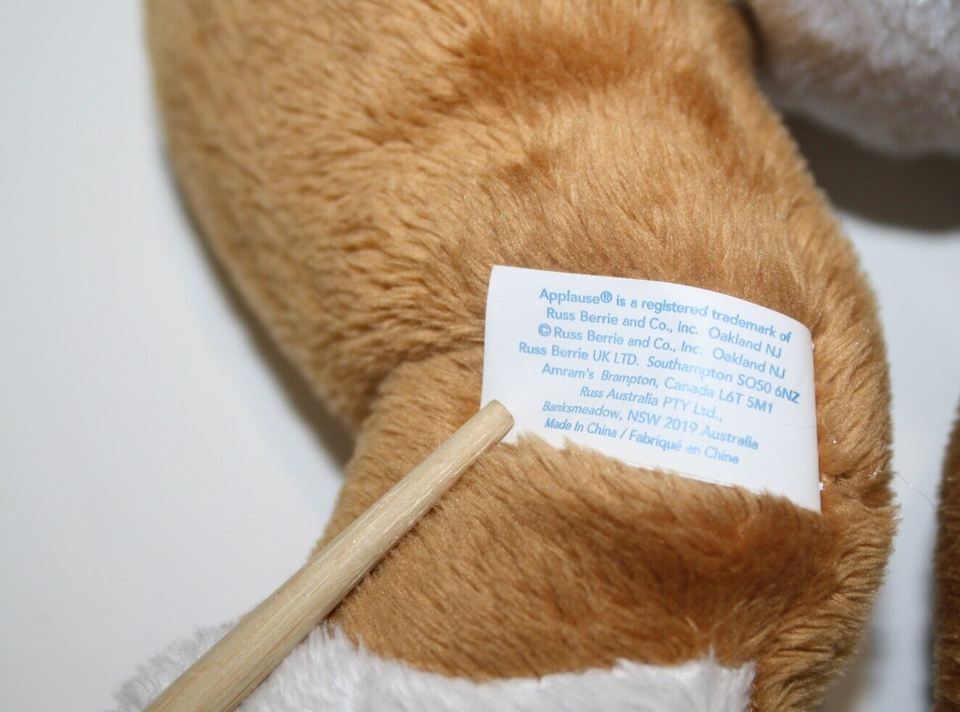 Applause® is a registered trademark of
Russ Berrie and Co., Inc. Oakland NJ
©Russ Berrie and Co., Inc. Oakland NJ
Russ Berrie UK LTD. Southampton SO50 6NZ
Amram's Brampton, Canada L6T 5M1
Russ Australia PTY Ltd.,
Banksmeadow, NSW 2019 Australia
Made In China / Fabriqué en Chine